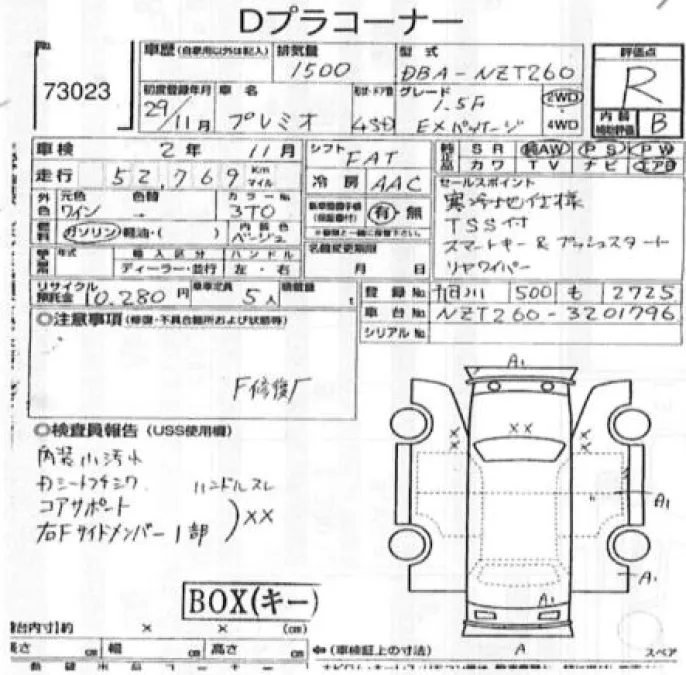 Dプラコーナー
73023
車歴 (自家用以外は記入) 排気量 1500 型式 DBA-NZT260 評価点 R
初度登録年月 29/11月 車名 プレミオ 形状・ドア数 4SD グレード 1.5F EXパッケージ 2WD 4WD 内装補助評価 B
車検 2年 11月 シフト FAT
純正品 SR AW PS PW
カワ TV ナビ エアB
走行 52,769 Km マイル 冷房 AAC
セールスポイント
外色 元色 ワイン 色替 → カラーNo. 3T0 有・無
寒冷地仕様
TSS付
スマートキー & プッシュスタート
リヤワイパー
燃料 ガソリン・軽油・( ) 内装色 ベージュ
年式 輸入区分 ハンドル 名義変更期限
ディーラー・並行 左・右 月 日
リサイクル預託金 10,280円 乗車定員 5人 積載量 t
登録No. 旭川 500 も 2725
車台No. NZT260-3201796
シリアルNo.
◎注意事項 (修復・不具合箇所および状態等)
F修復歴
◎検査員報告 (USS使用欄)
内装小汚れ
Dシートフチシワ ハンドルスレ
コアサポート
右Fサイドメンバー1部 ) XX
A1
XX
XX
XX
A1
A1
A1
A
BOX(キー)
荷台内寸)約 × × (cm)
長さ cm 幅 cm 高さ cm
(車検証上の寸法)
スペア